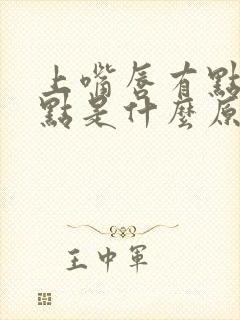 上嘴唇有點
點是什麼原
王中軍